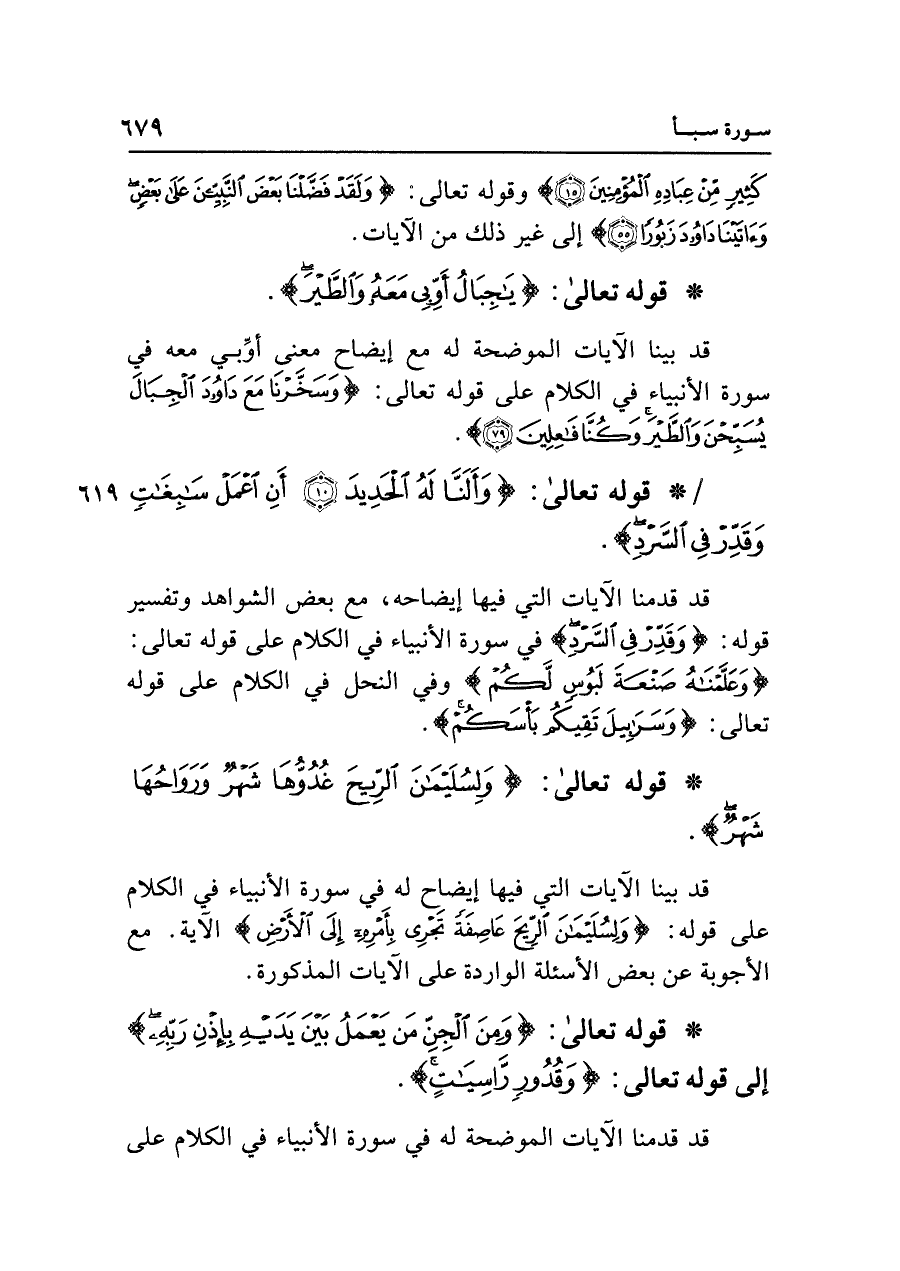 سورة سبأ ٦٧٩
كَثِيرٍ مِّنْ عِبَادِهِ الْمُؤْمِنِينَ ۝١٥﴾ وقوله تعالى: ﴿وَلَقَدْ فَضَّلْنَا بَعْضَ النَّبِيِّۦنَ عَلَىٰ بَعْضٍۖ
وَءَاتَيْنَا دَاوُۥدَ زَبُورًا ۝٥٥﴾ إلى غير ذلك من الآيات.
* قوله تعالىٰ: ﴿يَٰجِبَالُ أَوِّبِى مَعَهُۥ وَٱلطَّيْرَۖ﴾.
قد بينا الآيات الموضحة له مع إيضاح معنى أوِّبي معه في
سورة الأنبياء في الكلام على قوله تعالى: ﴿وَسَخَّرْنَا مَعَ دَاوُۥدَ ٱلْجِبَالَ
يُسَبِّحْنَ وَٱلطَّيْرَۚ وَكُنَّا فَٰعِلِينَ ۝٧٩﴾.
/ * قوله تعالىٰ: ﴿وَأَلَنَّا لَهُ ٱلْحَدِيدَ ۝١٠ أَنِ ٱعْمَلْ سَٰبِغَٰتٍ ٦١٩
وَقَدِّرْ فِى ٱلسَّرْدِۖ﴾.
قد قدمنا الآيات التي فيها إيضاحه، مع بعض الشواهد وتفسير
قوله: ﴿وَقَدِّرْ فِى ٱلسَّرْدِۖ﴾ في سورة الأنبياء في الكلام على قوله تعالى:
﴿وَعَلَّمْنَٰهُ صَنْعَةَ لَبُوسٍ لَّكُمْ﴾ وفي النحل في الكلام على قوله
تعالى: ﴿وَسَرَٰبِيلَ تَقِيكُم بَأْسَكُمْۚ﴾.
* قوله تعالىٰ: ﴿وَلِسُلَيْمَٰنَ ٱلرِّيحَ غُدُوُّهَا شَهْرٌ وَرَوَاحُهَا
شَهْرٌۖ﴾.
قد بينا الآيات التي فيها إيضاح له في سورة الأنبياء في الكلام
على قوله: ﴿وَلِسُلَيْمَٰنَ ٱلرِّيحَ عَاصِفَةً تَجْرِى بِأَمْرِهِۦٓ إِلَى ٱلْأَرْضِ﴾ الآية. مع
الأجوبة عن بعض الأسئلة الواردة على الآيات المذكورة.
* قوله تعالىٰ: ﴿وَمِنَ ٱلْجِنِّ مَن يَعْمَلُ بَيْنَ يَدَيْهِ بِإِذْنِ رَبِّهِۦۖ﴾
إلى قوله تعالى: ﴿وَقُدُورٍ رَّاسِيَٰتٍۚ﴾.
قد قدمنا الآيات الموضحة له في سورة الأنبياء في الكلام على